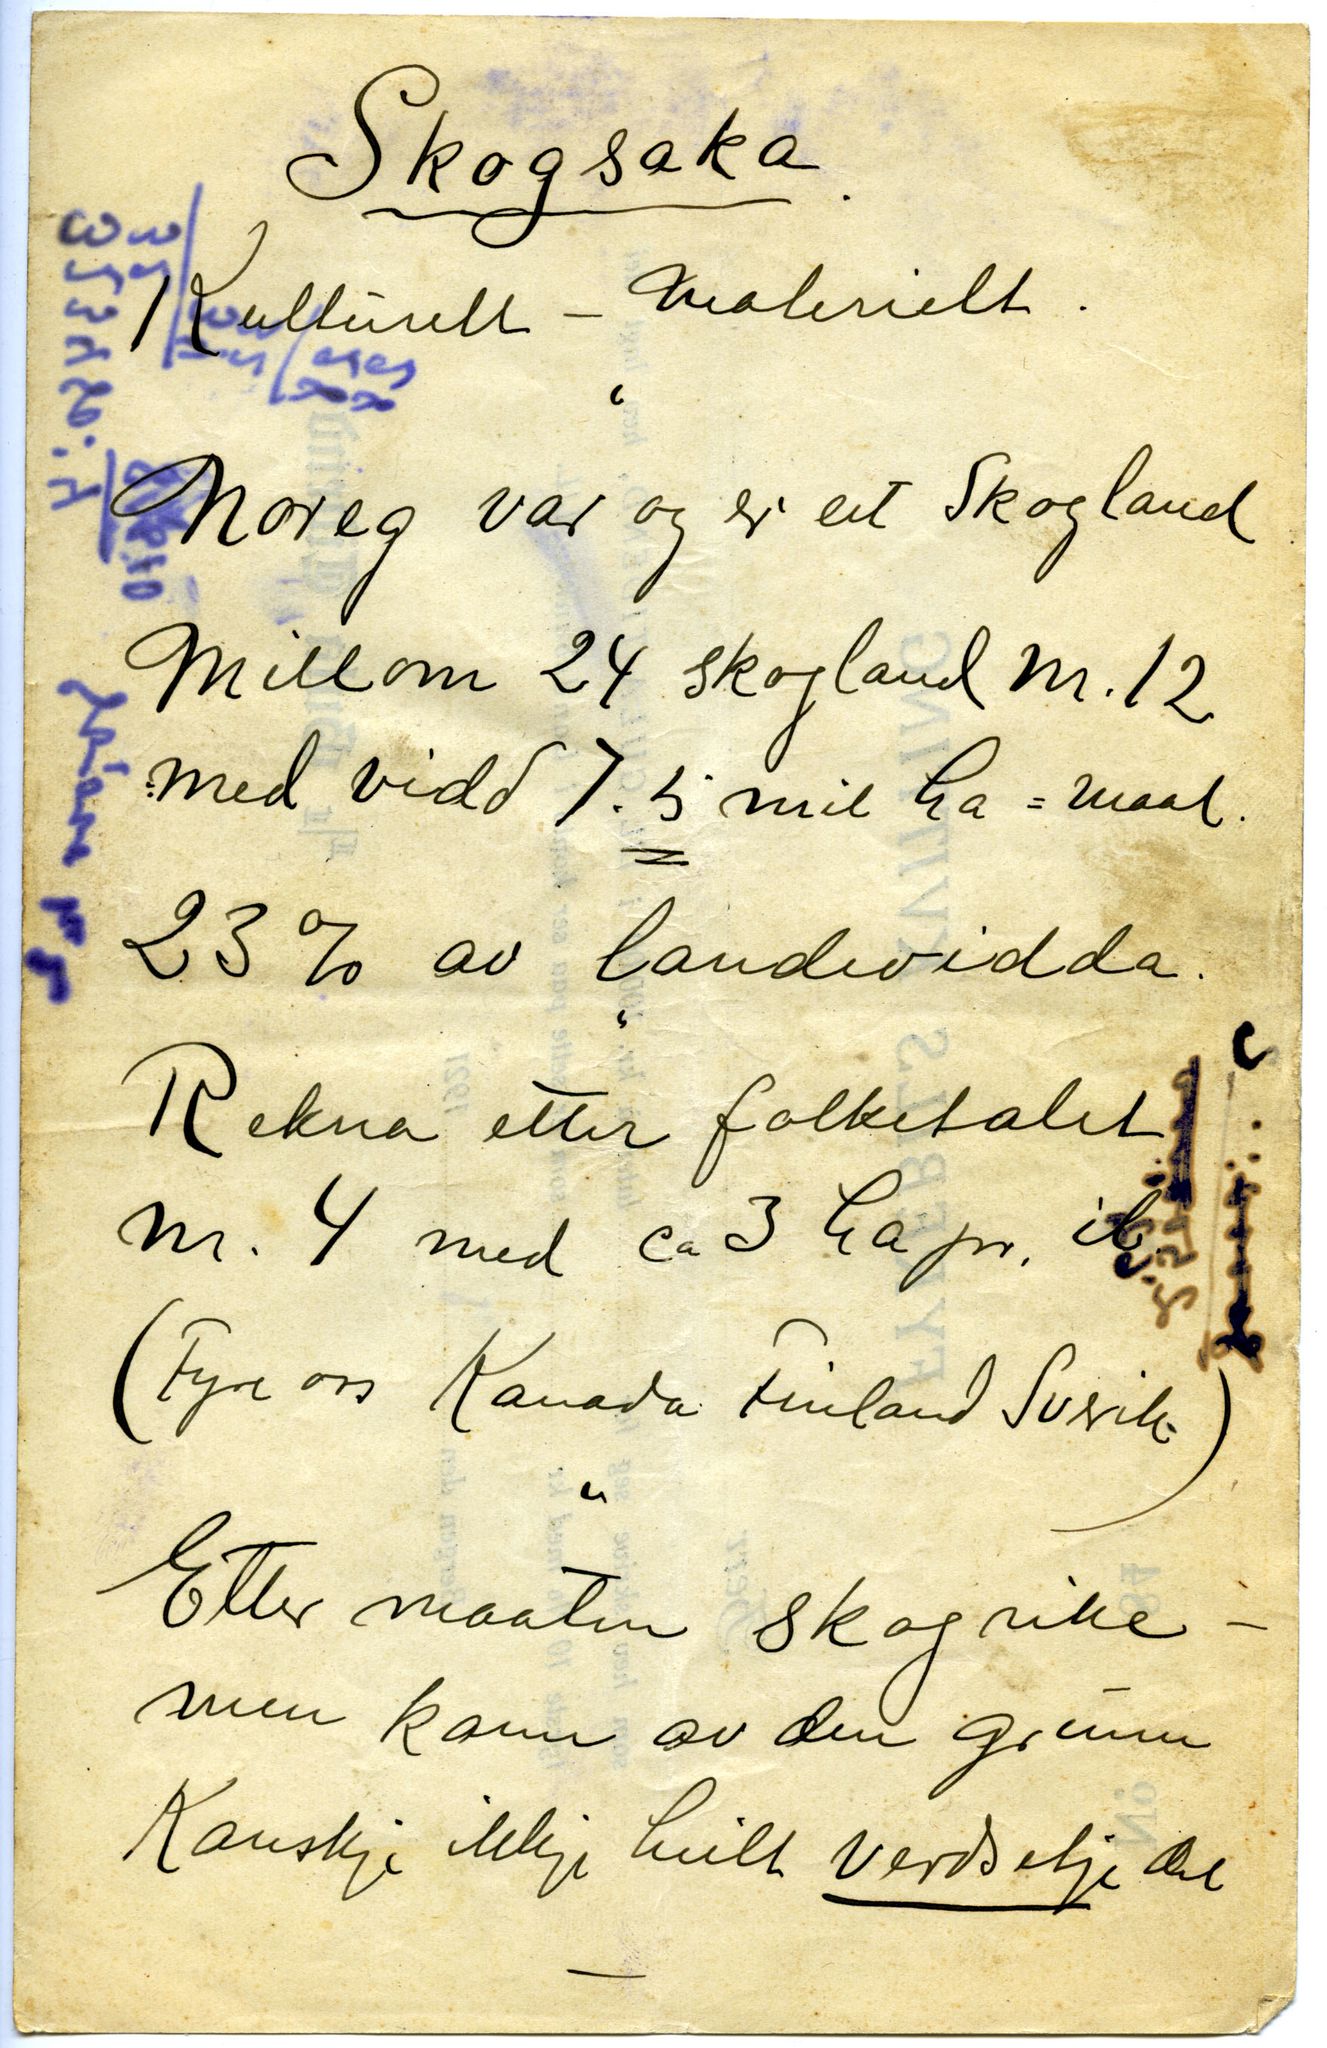 Skogsaka.
Kulturelt - Materielt.
"
Noreg var og er eit Skogland
Millom 24 skogland Nr. 12
med vidd 7.5 mil ha = maal.
23 % av landevidda.
"
Rekna etter folketalet
nr. 4 med ca 3 ha pr. ib.
(Fyre oss Kanada Finland Sverik)
"
Etter maaten skogrike -
men kann av den grunn
Kanskje ikkje heilt verdsetje det